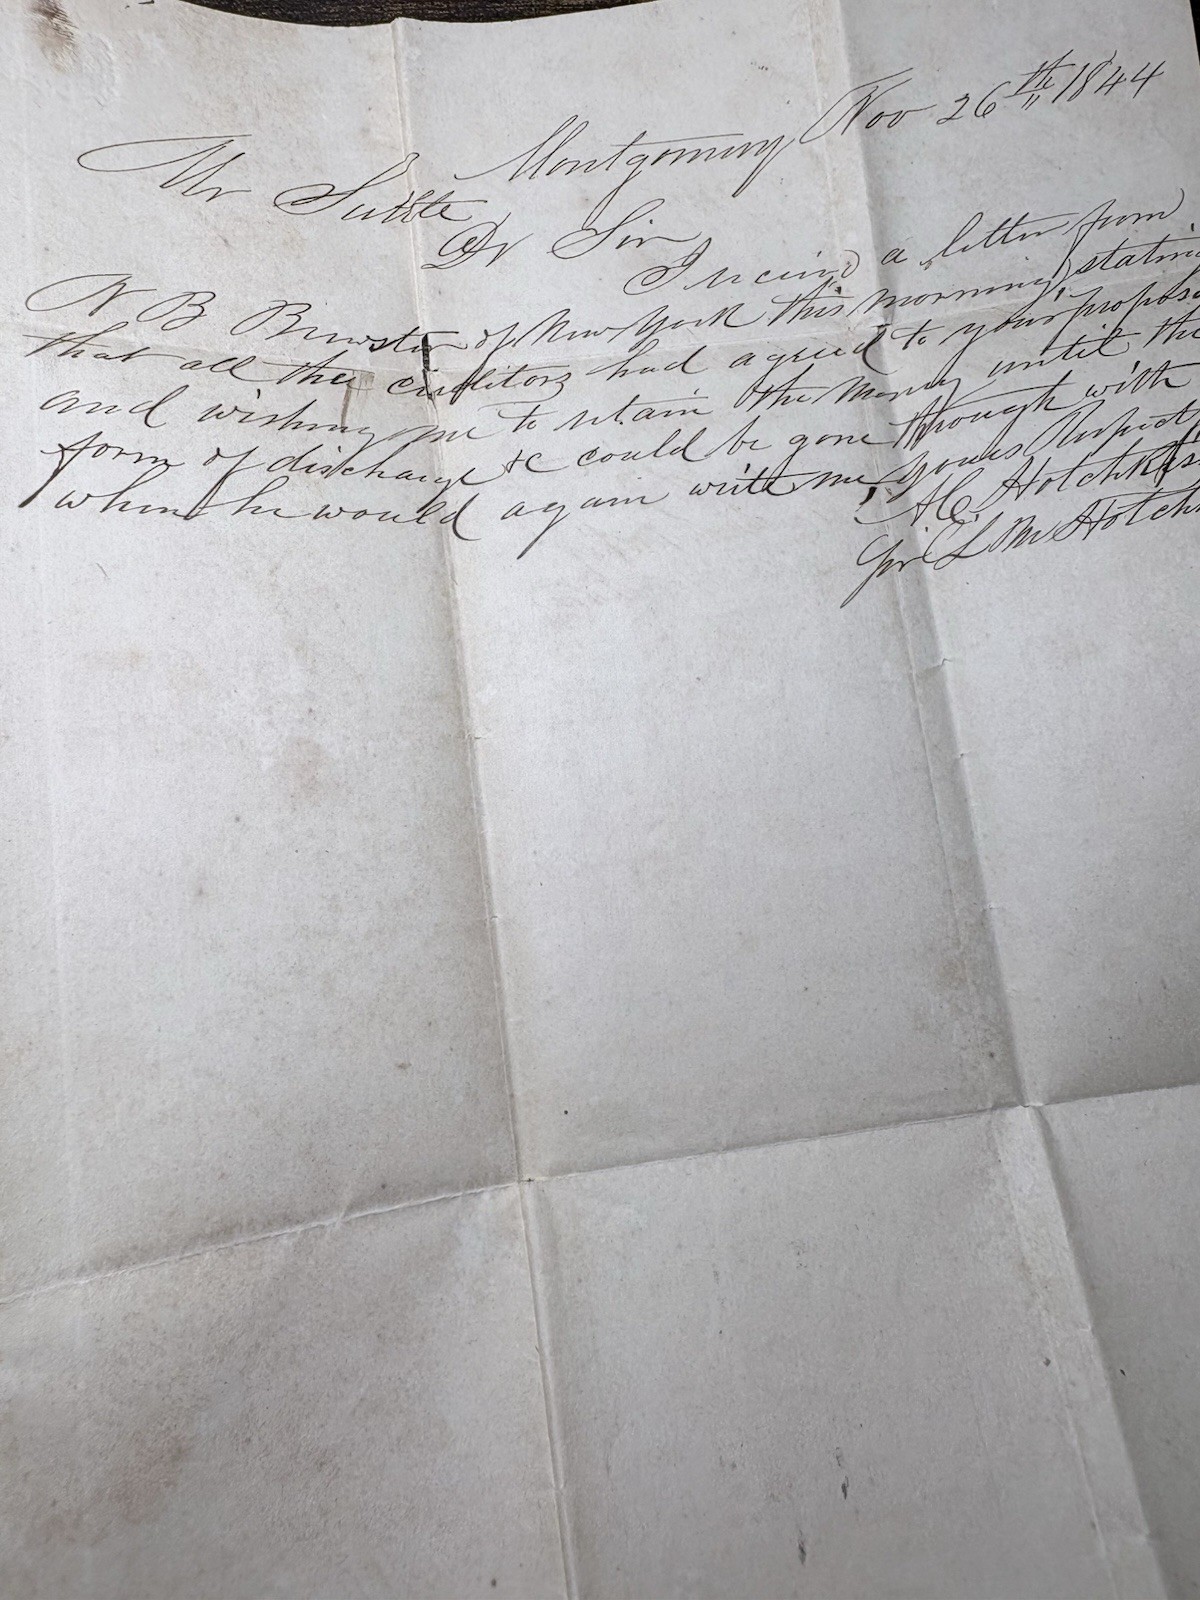 Montgomery Nov 26th 1844
Mr
Dr Sir
I received a letter from
N B Brewster of New York this morning statin
that all the creditors had agreed to your propos
and wishing me to retain the money until the
form of discharge &c could be gone through with
when he would again write me, yours Respect
H Hotchkiss
Pr L M Hotch